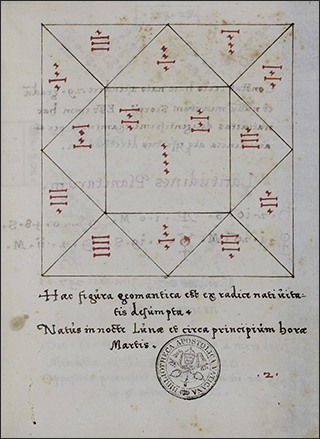 Hæc figura geomantica est ex radice nativita-
tis desumpta.
Natus in nocte Lunæ et circa principium horæ
Martis.
BIBLIOTHECA APOSTOLICA VATICANA
2.